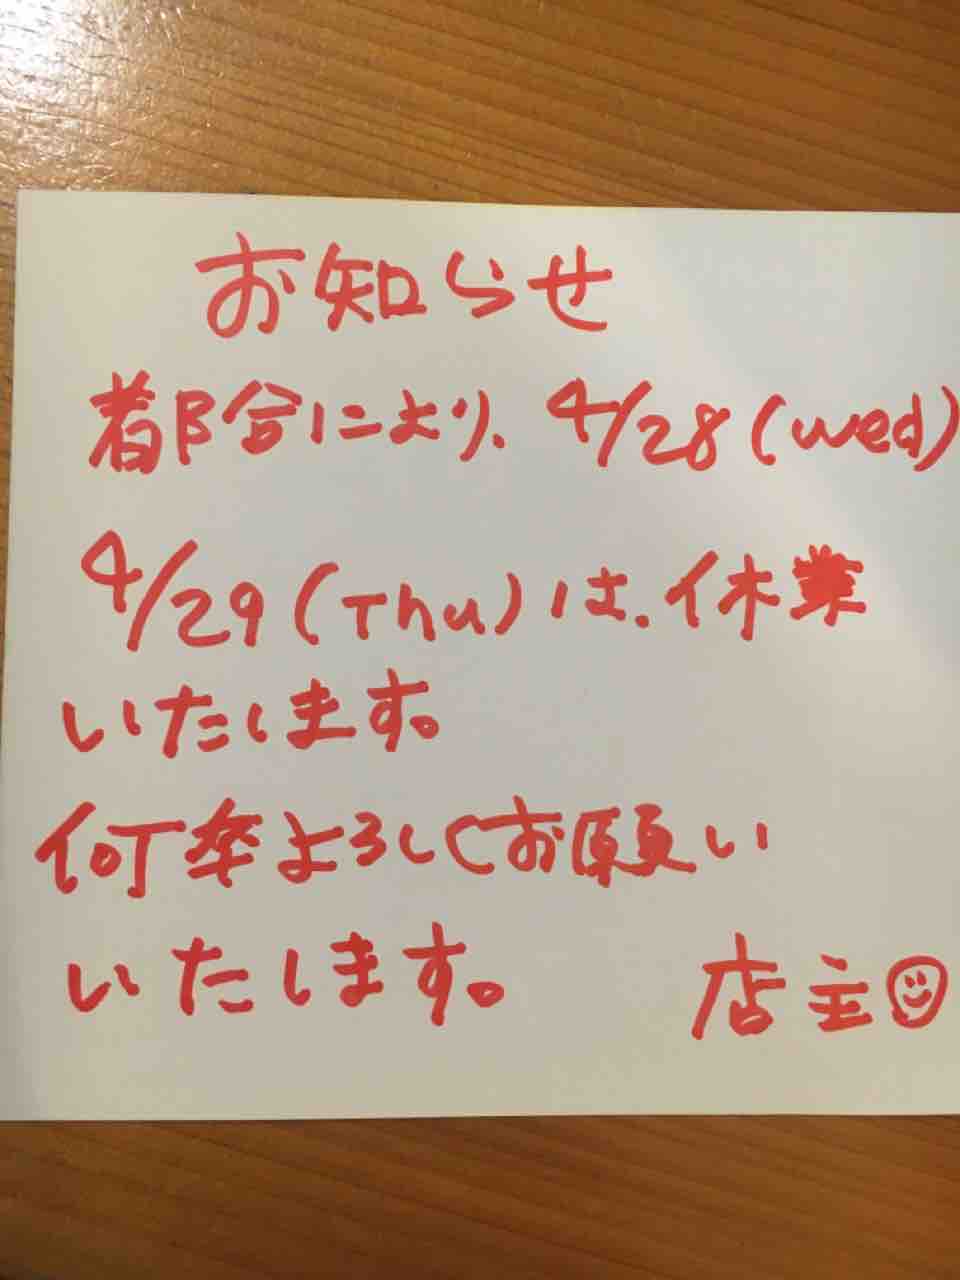 お知らせ
都合により、4/28(wed)
4/29(Thu)は、休業
いたします。
何卒よろしくお願い
いたします。 店主☺